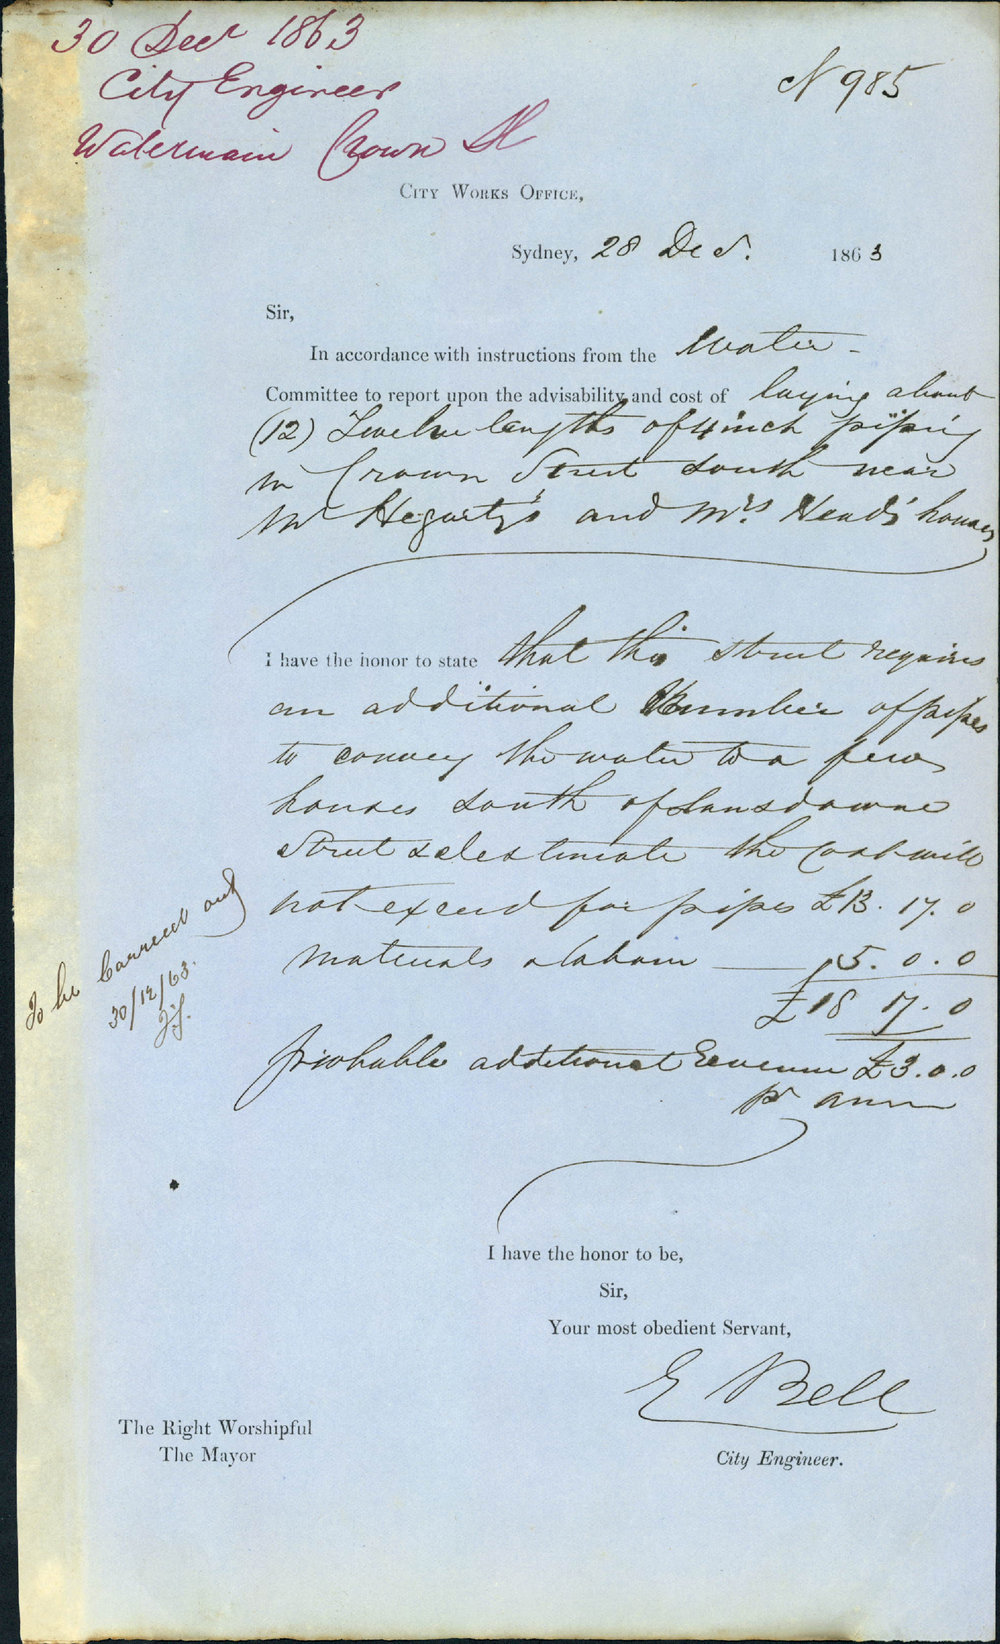 30 Decr 1863
City Engineer
Watermain Crown St
N 985
City Works Office,
Sydney, 28 Decr. 1863
Sir,
In accordance with instructions from the Water
Committee to report upon the advisability and cost of laying about
(12) Twelve lengths of 4 inch piping
in Crown Street south near
Mr Hegarty's and Mrs Head's houses
I have the honor to state that this street requires
an additional Number of pipes
to convey the water to a few
houses south of Lansdowne
Street & estimate the cost will
not exceed for pipes £13. 17. 0
Materials & labour 5. 0. 0
£18 17. 0
probable additional Revenue £3. 0. 0
pr ann
To be Carried out
30/12/63.
I have the honor to be,
Sir,
Your most obedient Servant,
E Bell
City Engineer.
The Right Worshipful
The Mayor